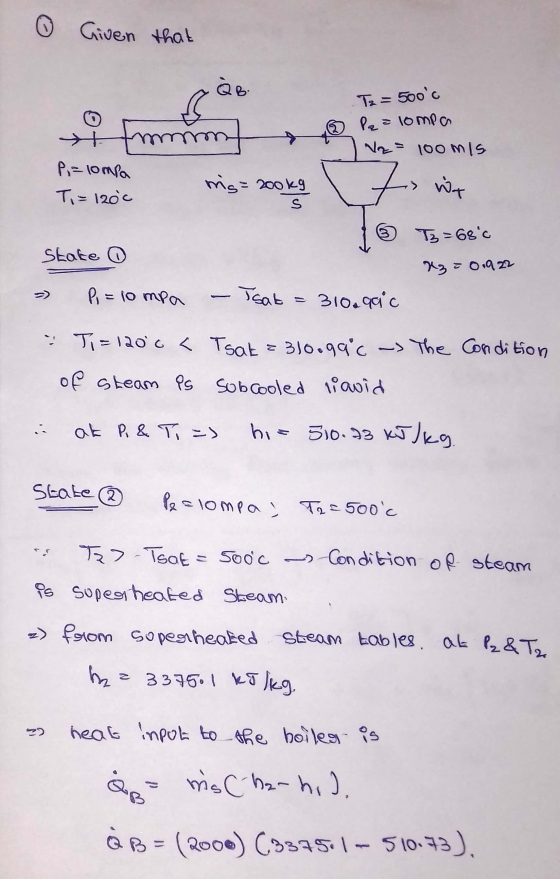 ① Given that
Q̇B.
T2 = 500°c
① ② P2 = 10mpa
V2 = 100 m/s
P1 = 10mPa
ṁs = 200 kg/s → ẆT
T1 = 120°c
③ T3 = 68°c
x3 = 0.922
State ①
=> P1 = 10 mpa — Tsat = 310.99°c
∵ T1 = 120°c < Tsat = 310.99°c -> The Condition
of steam is subcooled liquid
∴ at P1 & T1 => h1 = 510.73 kJ/kg.
State ② P2 = 10mpa ; T2 = 500°c
∵ T2 > Tsat = 500°c -> Condition of steam
is superheated steam.
=> from superheated steam tables. at P2 & T2,
h2 = 3375.1 kJ/kg.
=> heat input to the boiler is
Q̇B = ṁs (h2 - h1).
Q̇B = (2000) (3375.1 - 510.73).